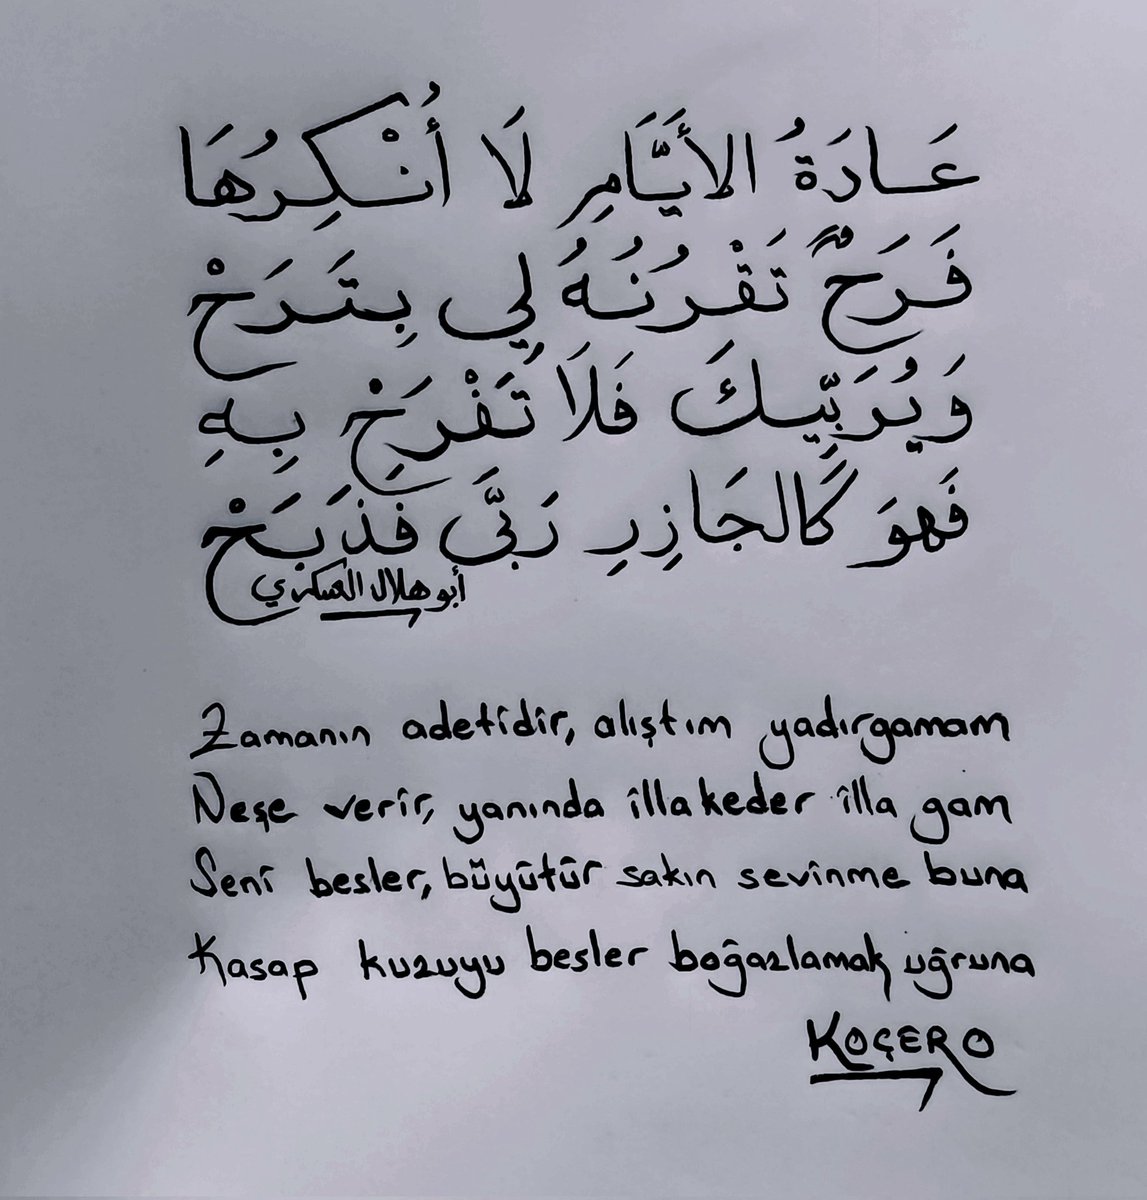 عَادَةُ الأَيَّامِ لَا أُنْكِرُهَا
فَرَحٌ تَقْرُنُهُ لِي بِتَرَحْ
وَيُرَبِّيكَ فَلَا تَفْرَحْ بِهِ
فَهوَ كَالجَازِرِ رَبَّى فذَبَحْ
أبو هلال العسكري
Zamanın adetidir, alıştım yadırgamam
Neşe verir, yanında illa keder illa gam
Seni besler, büyütür sakın sevinme buna
Kasap kuzuyu besler boğazlamak uğruna
KOÇERO